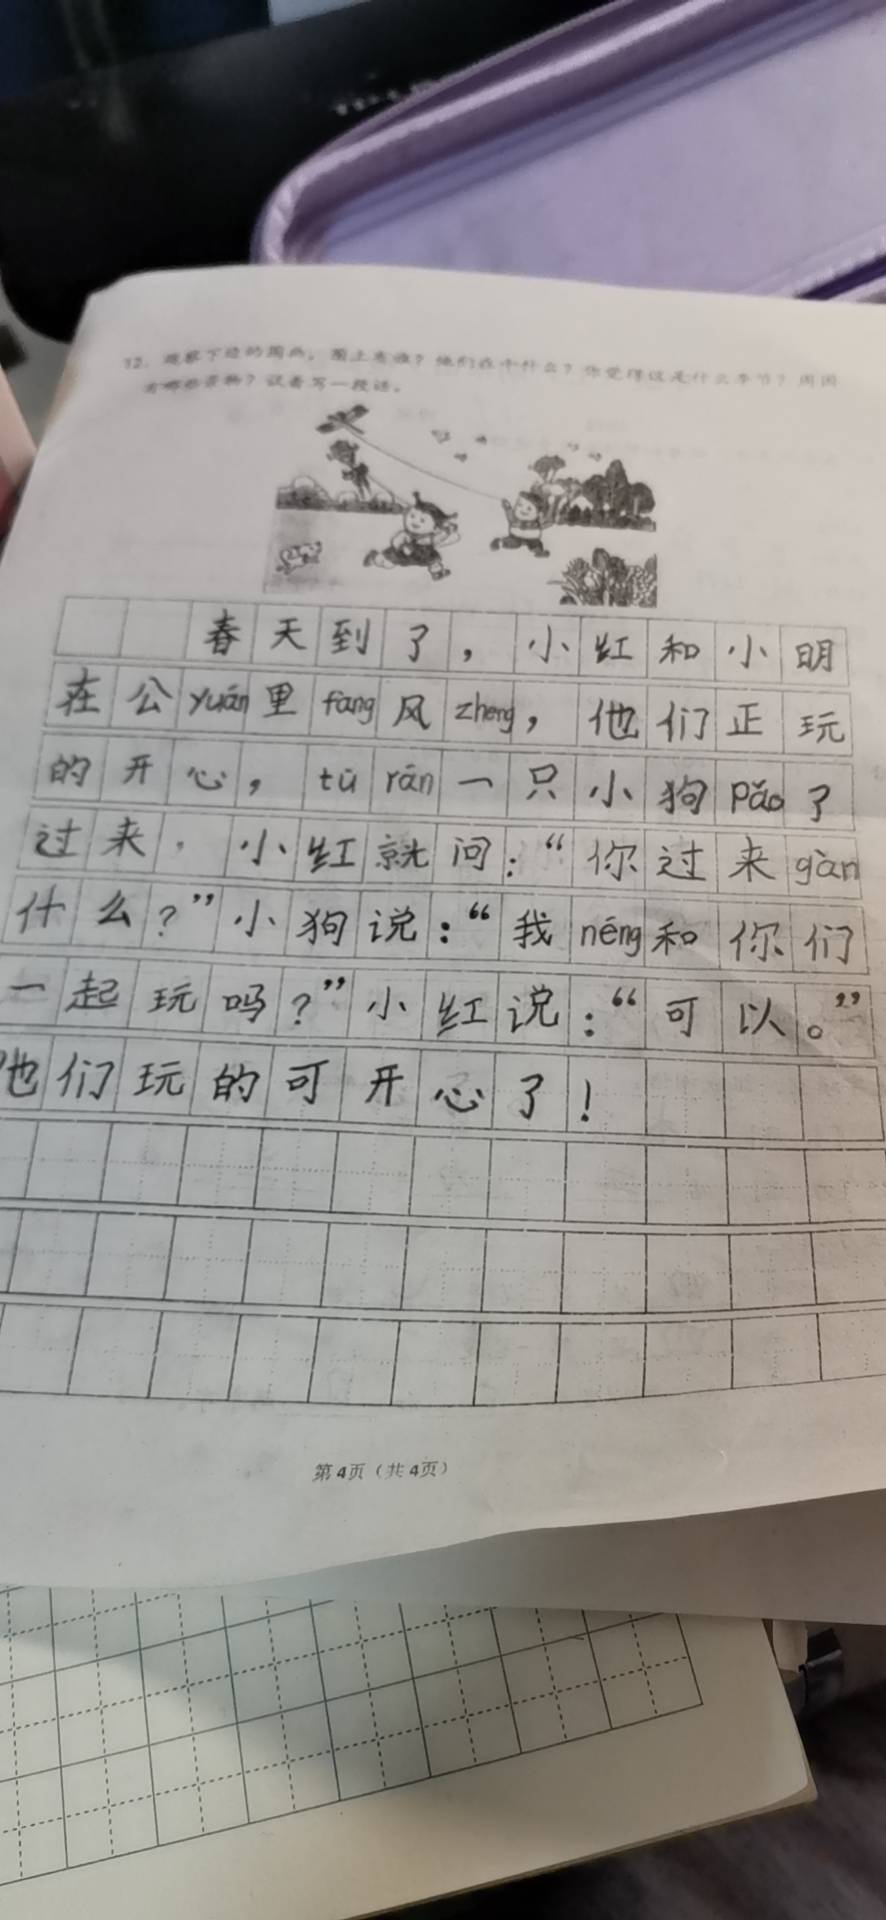 12. 观察下边的图画，图上有谁？他们在干什么？你觉得这是什么季节？周围
有哪些景物？试着写一段话。
春天到了，小红和小明
在公yuán里fàng风zheng，他们正玩
的开心，tū rán一只小狗pǎo了
过来，小红就问：“你过来gàn
什么？”小狗说：“我néng和你们
一起玩吗？”小红说：“可以。”
他们玩的可开心了！
第4页（共4页）